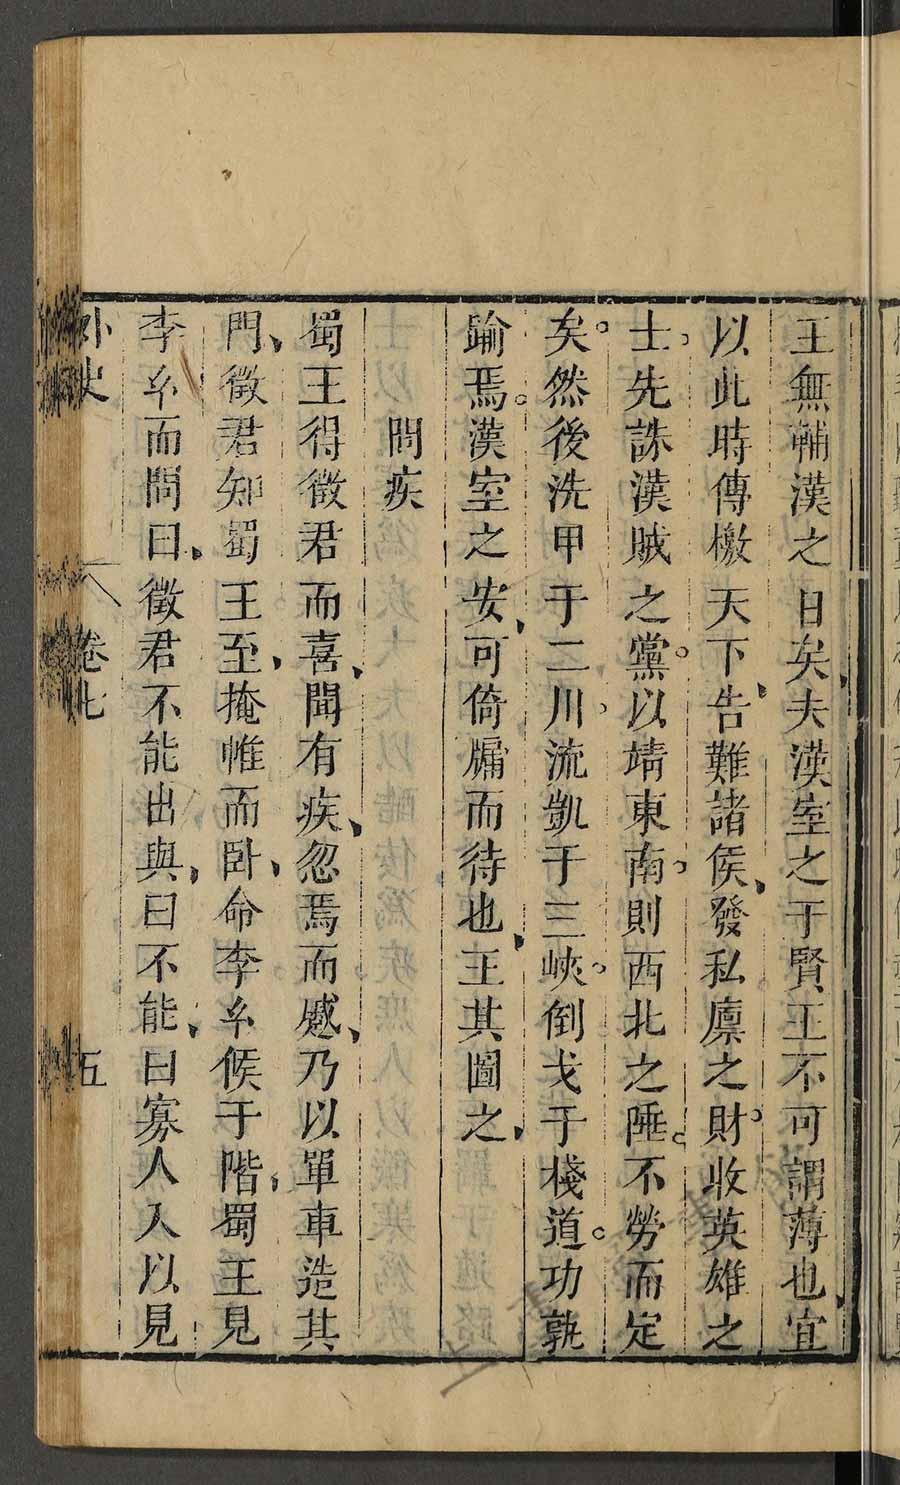 王無輔漢之日矣夫漢室之于賢王不可謂薄也宜
以此時傳檄天下告難諸侯發私廪之財收英雄之
士先誅漢賊之黨以靖東南則西北之陲不勞而定
矣然後洗甲于二川流凱于三峽倒戈于棧道功孰
踰焉漢室之安可倚牖而待也王其圖之
問疾
蜀王得徵君而喜聞有疾忽焉而慼乃以單車造其
門徵君知蜀王至掩帷而卧命李幺候于階蜀王見
李幺而問曰徵君不能出與曰不能曰寡人入以見
外史
卷七
五